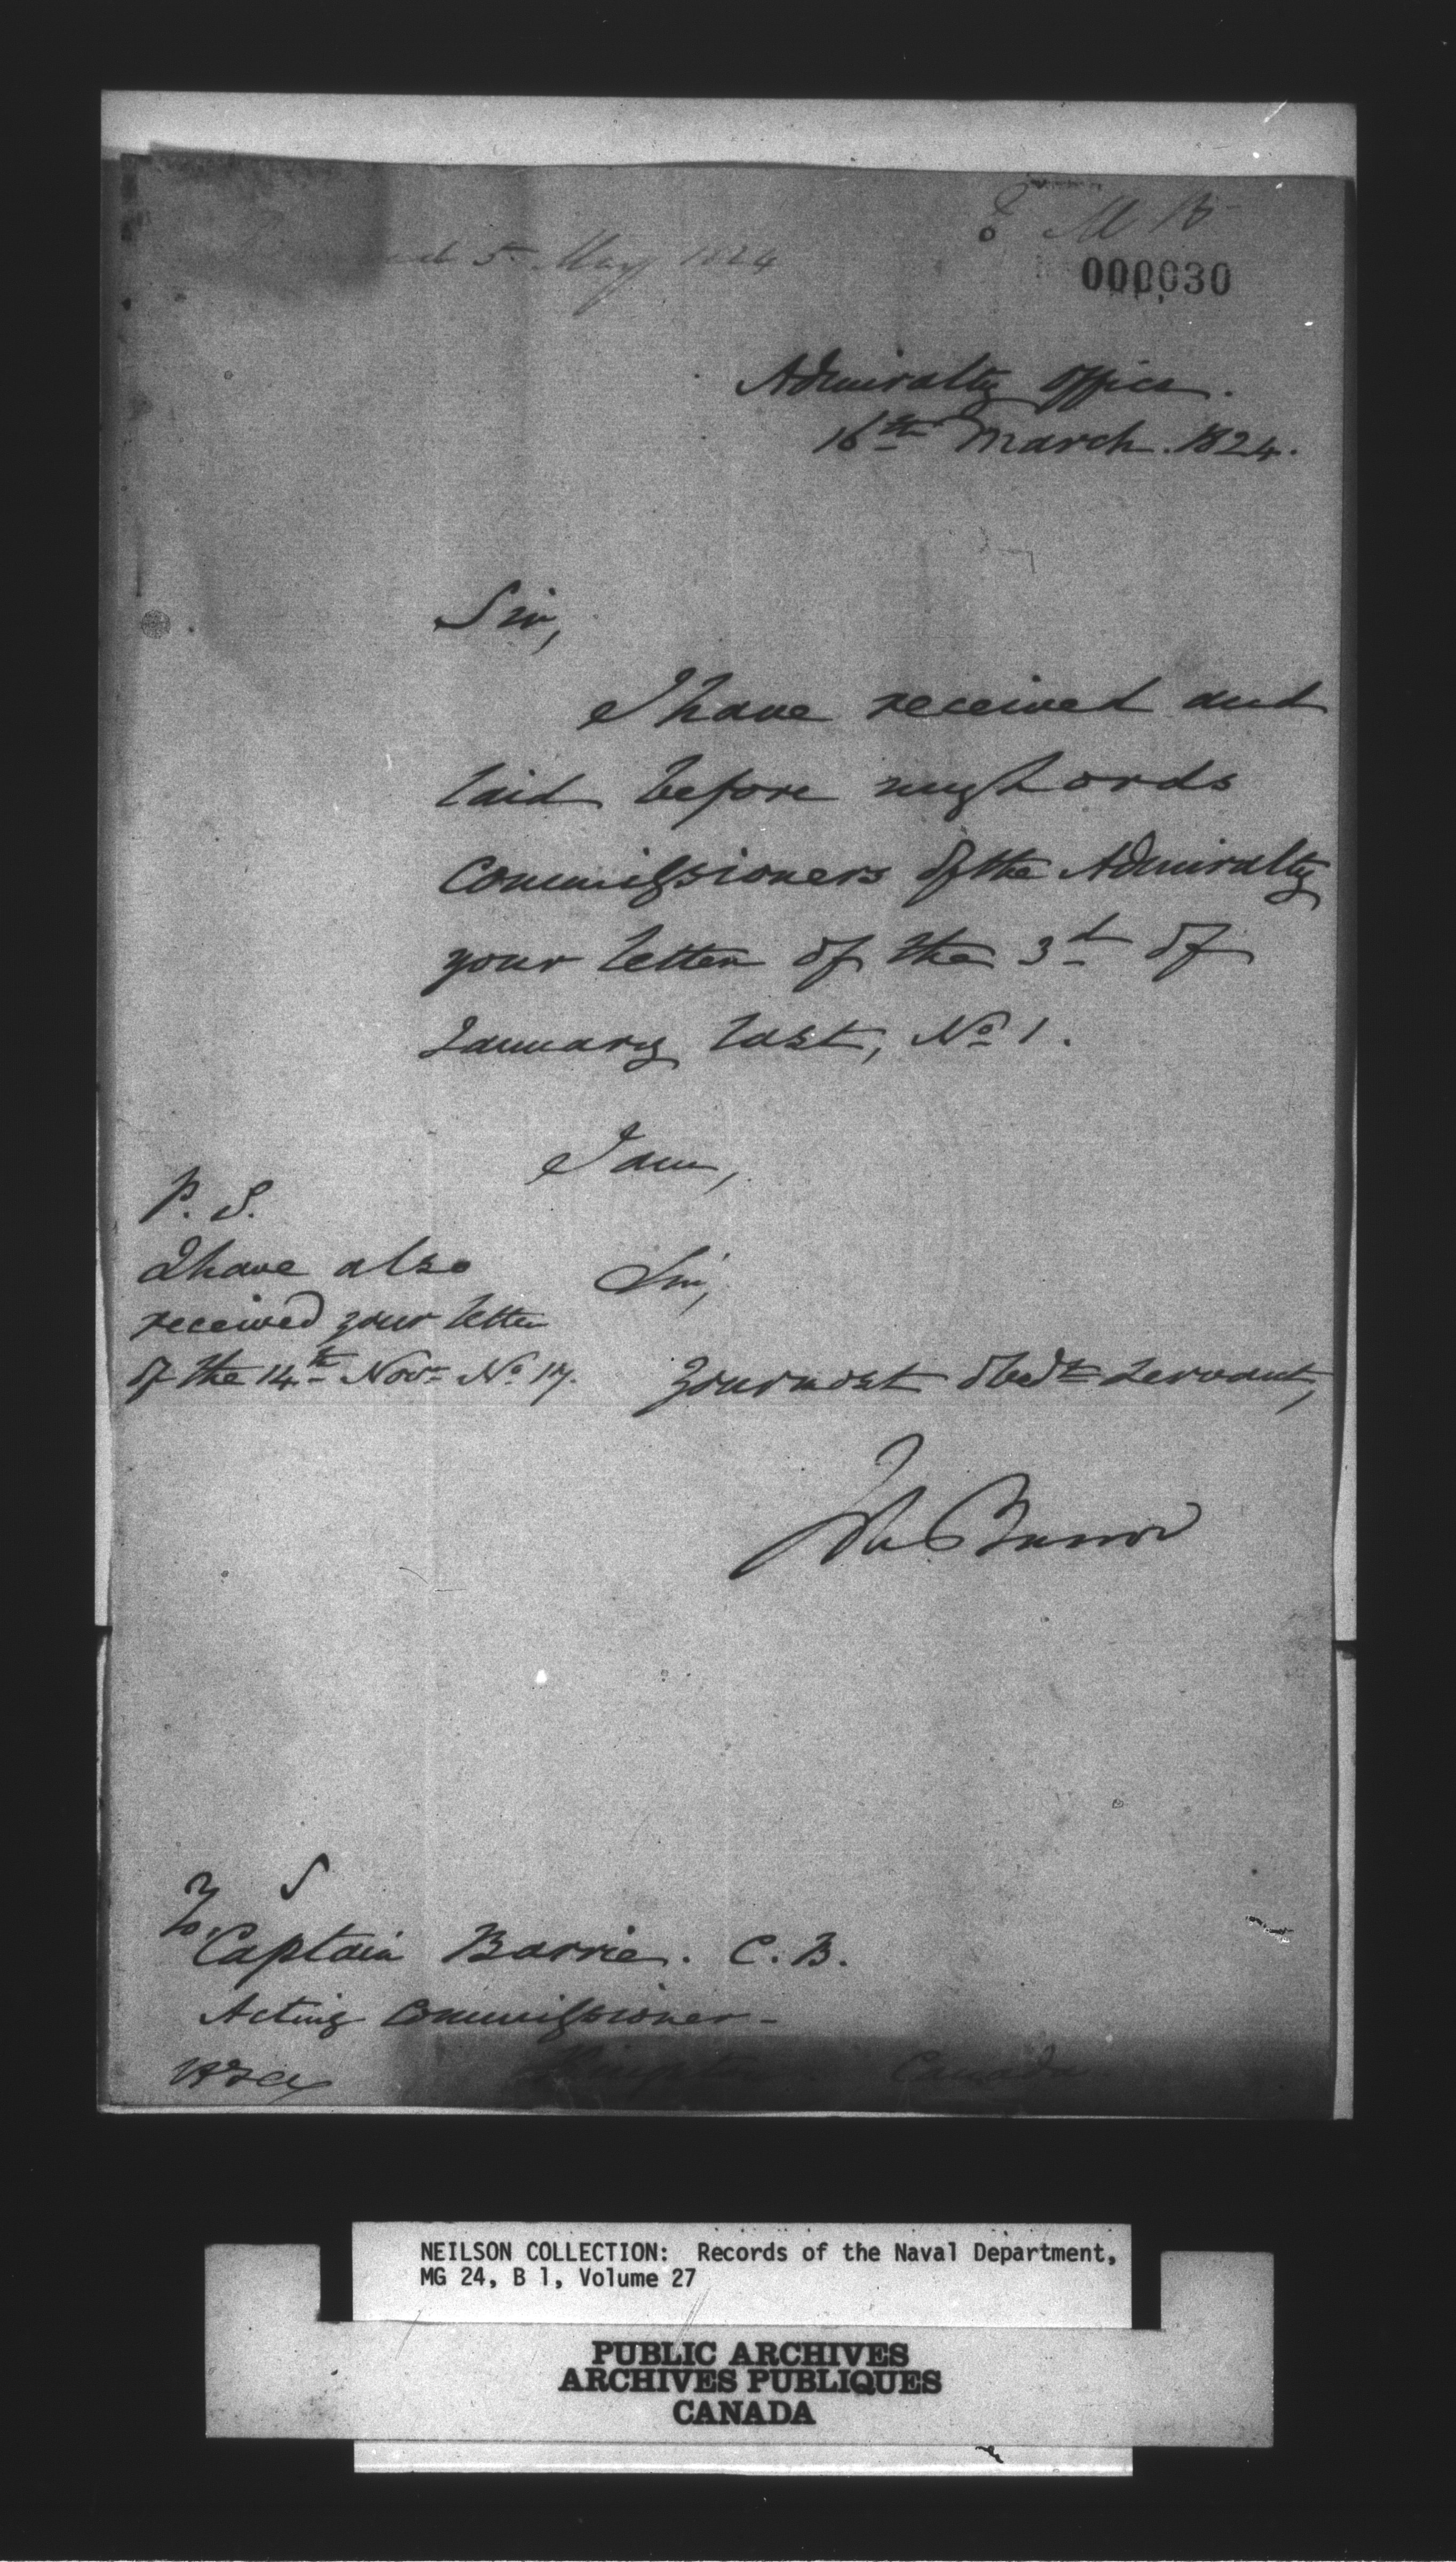 5 May 1824
000030
Admiralty Office.
16th March. 1824.
Sir,
I have received and
laid before my Lords
Commissioners of the Admiralty
your letter of the 3d of
January last, No 1.
I am,
P. S.
I have also
received your letter
of the 14th Novr No 17.
Sir,
Your most Obedt Servant,
Jn Barrow
Captain Barrie. C.B.
Acting Commissioner
Canada
NEILSON COLLECTION: Records of the Naval Department,
MG 24, B 1, Volume 27
PUBLIC ARCHIVES
ARCHIVES PUBLIQUES
CANADA